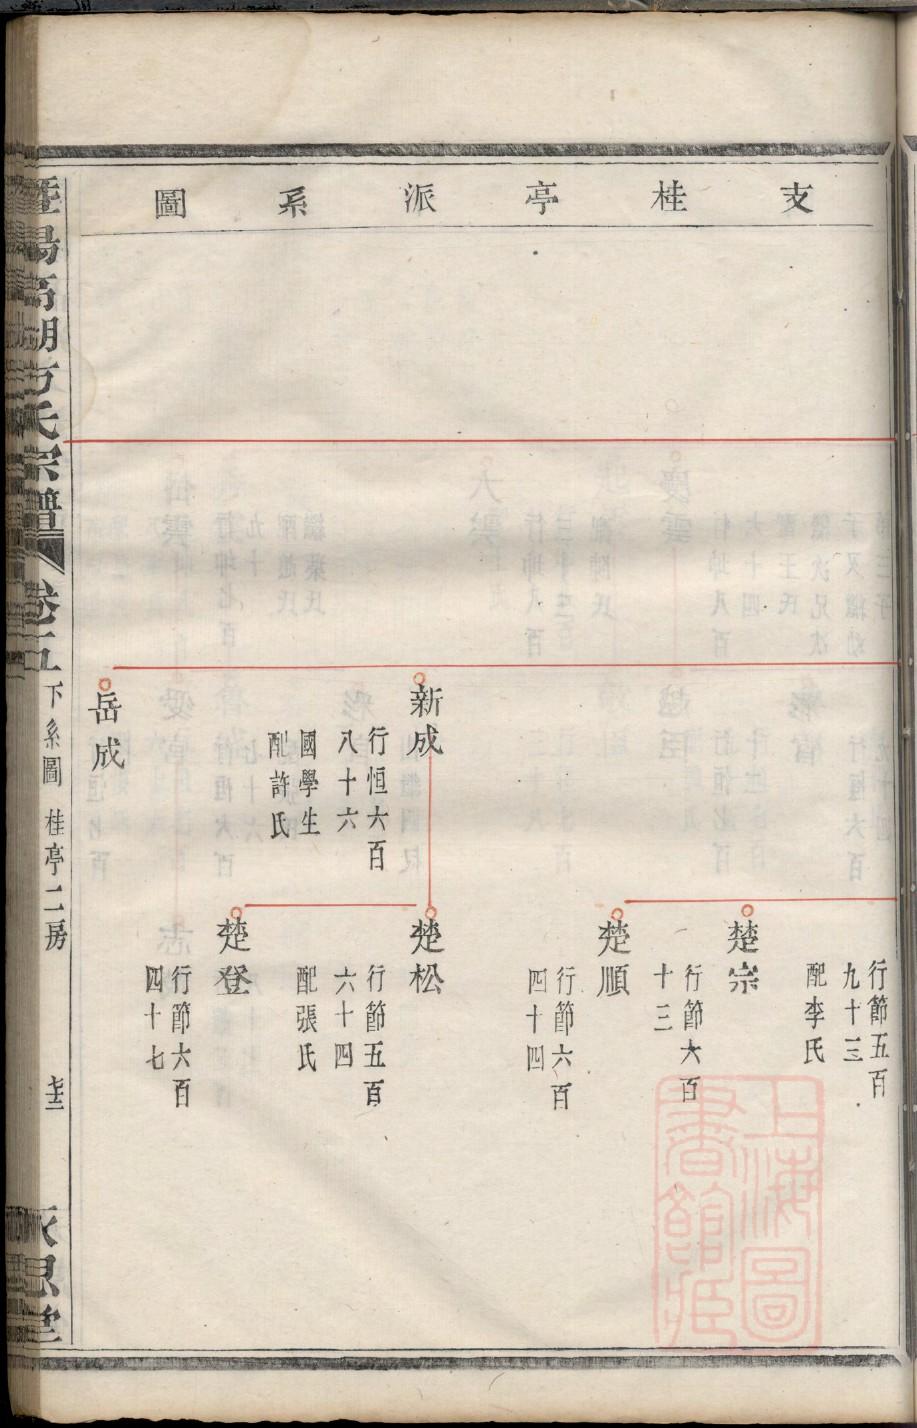 支桂亭派系圖
行節五百
九十三
配李氏
楚宗
行節六百
十三
楚順
行節六百
四十四
新成
行恒六百
八十六
國學生
配許氏
楚松
行節五百
六十四
配張氏
楚登
行節六百
四十七
岳成
暨陽高湖方氏宗譜
卷十五
下系圖
桂亭二房
上海圖書館藏